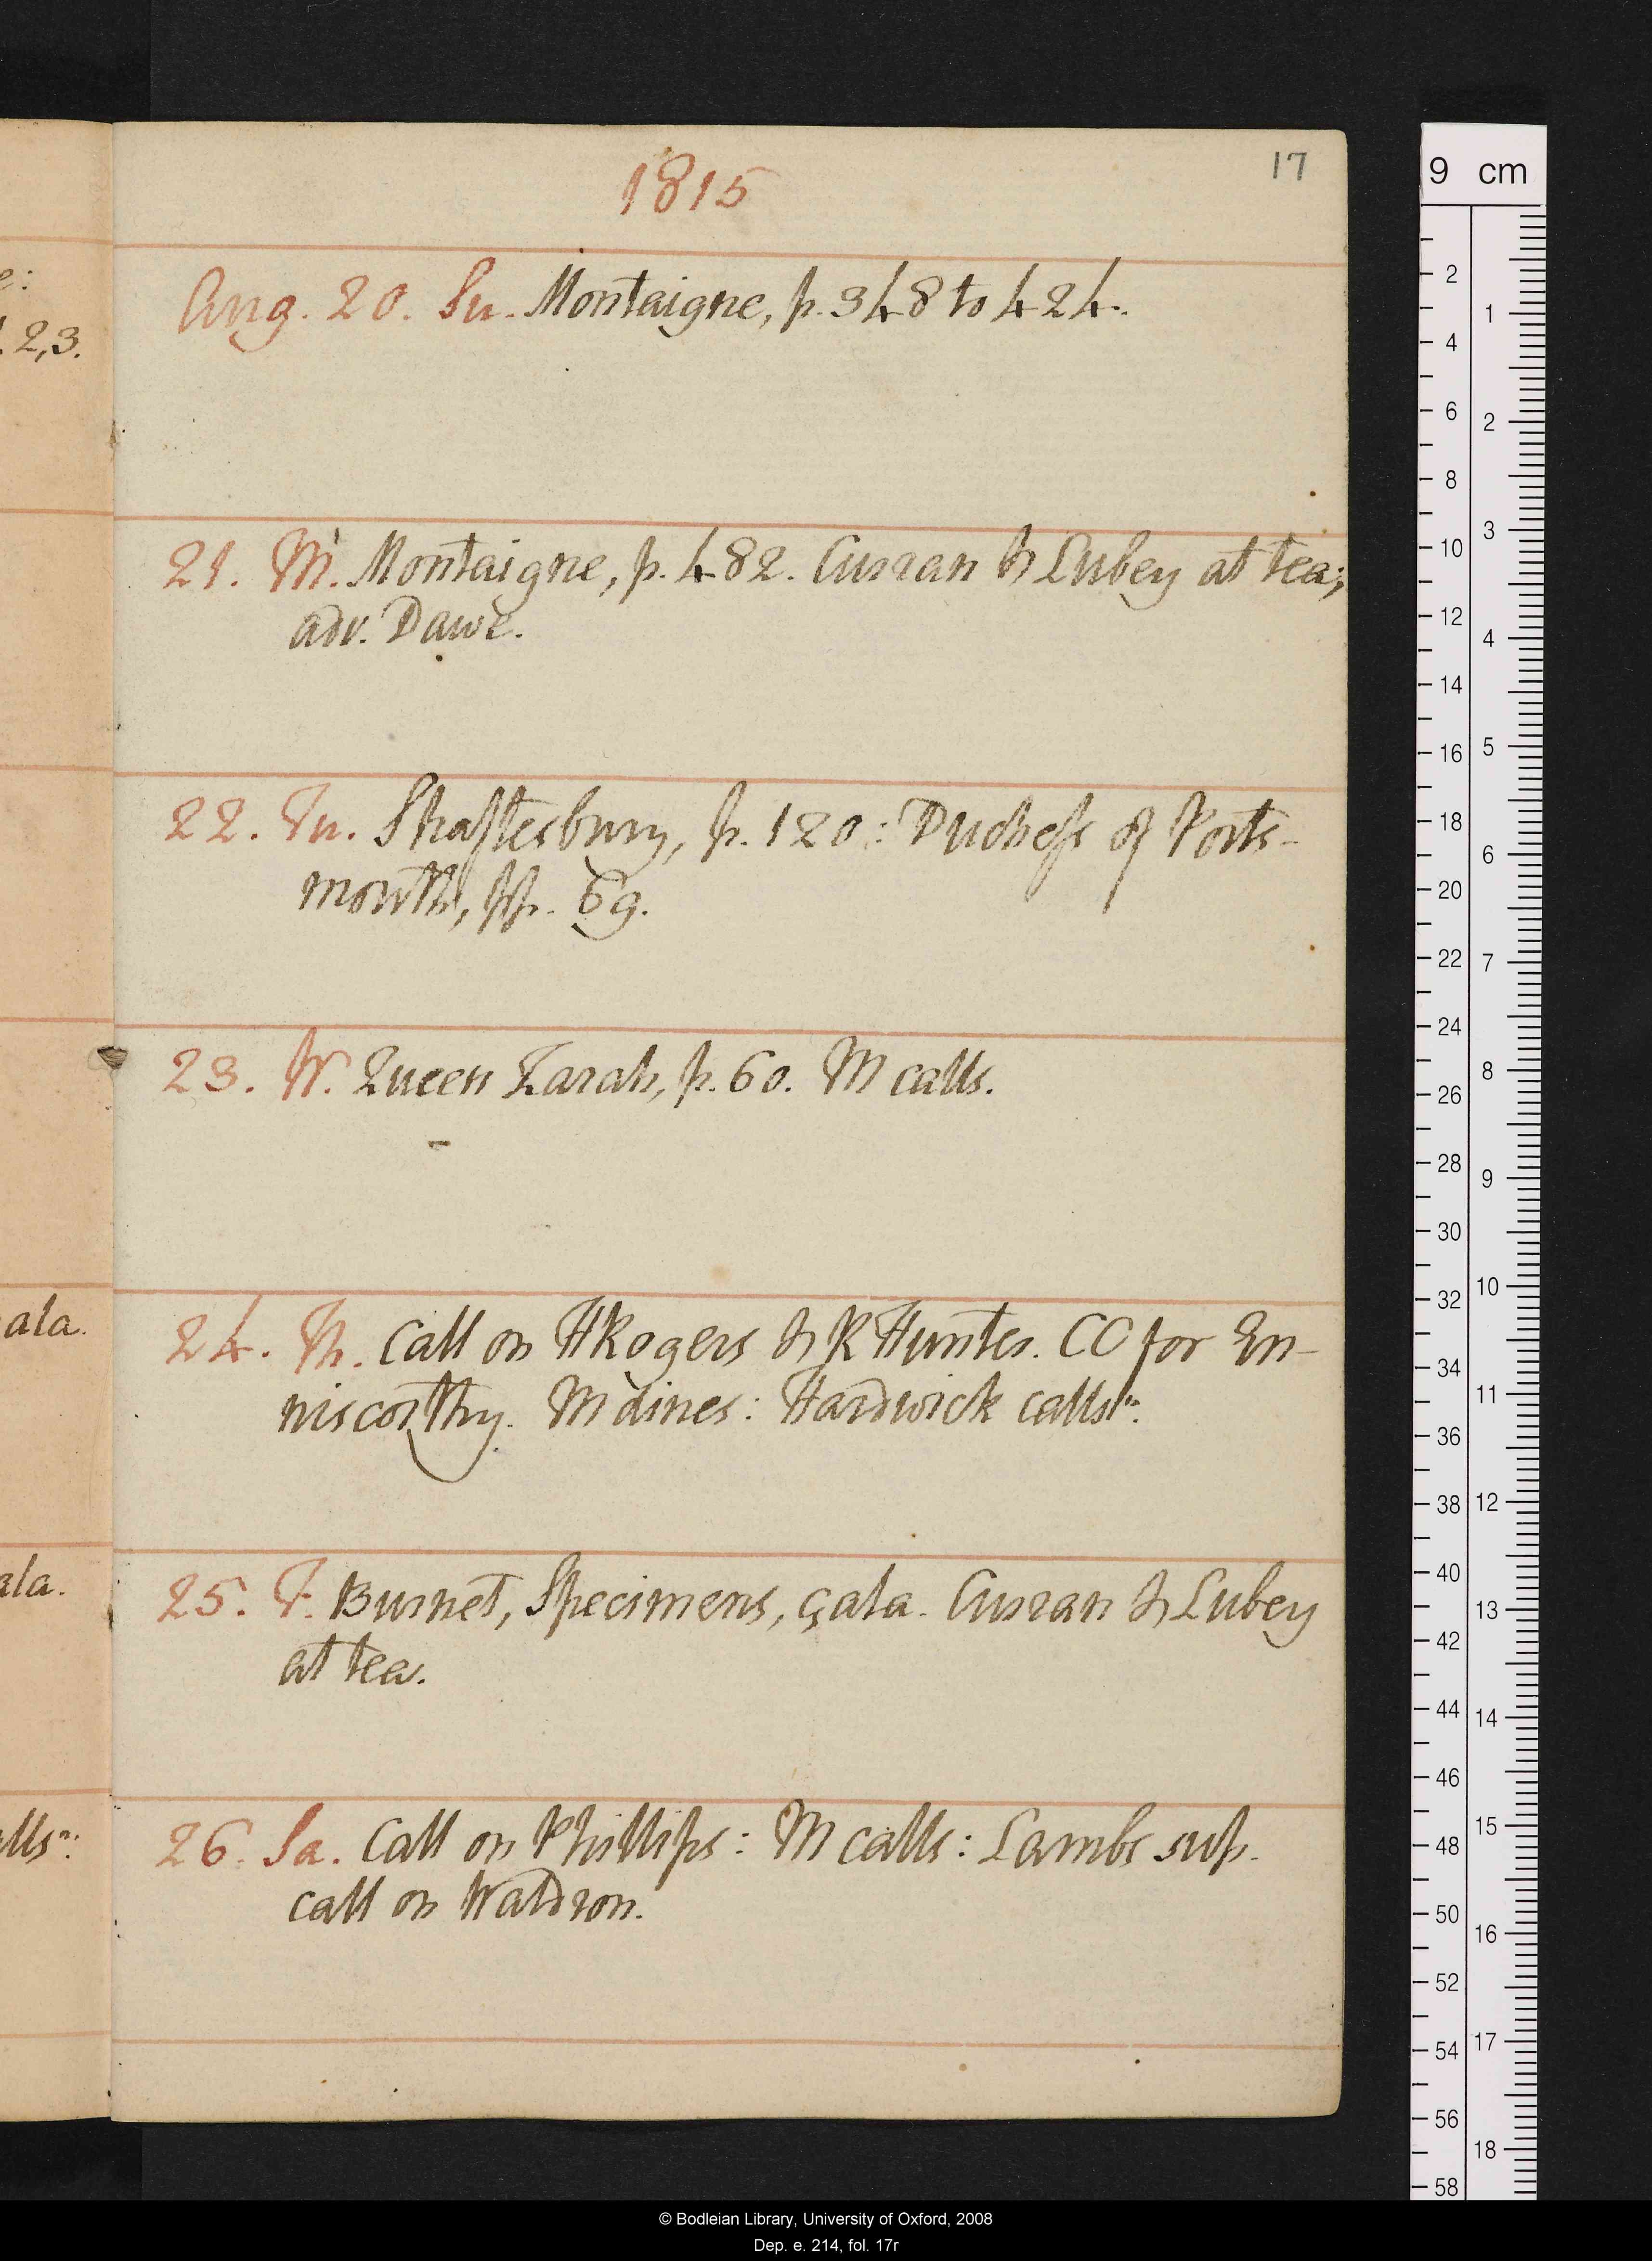 17
1815
e:
2,3.
Aug. 20. Su. Montaigne, p. 348 to 424.
21. M. Montaigne, p. 482. Curran & Lubey at tea;
adv. Dawe.
22. Tu. Shaftesbury, p. 120: Duchess of Ports-
mouth, pp. 69.
23. W. Queen Zarah, p. 60. M calls.
ala.
24. Th. Call on HRogers & R Hunter. CC for En-
niscorthy. M dines: Hardwick callsⁿ.
ala.
25. F. Burnet, Specimens, çala. Curran & Lubey
at tea.
26. Sa. Call on Phillips: M calls: Lambs sup.
call on Waldron.
9 cm
2
4
6
8
10
12
14
16
18
20
22
24
26
28
30
32
34
36
38
40
42
44
46
48
50
52
54
56
58
1
2
3
4
5
6
7
8
9
10
11
12
13
14
15
16
17
18
© Bodleian Library, University of Oxford, 2008
Dep. e. 214, fol. 17r